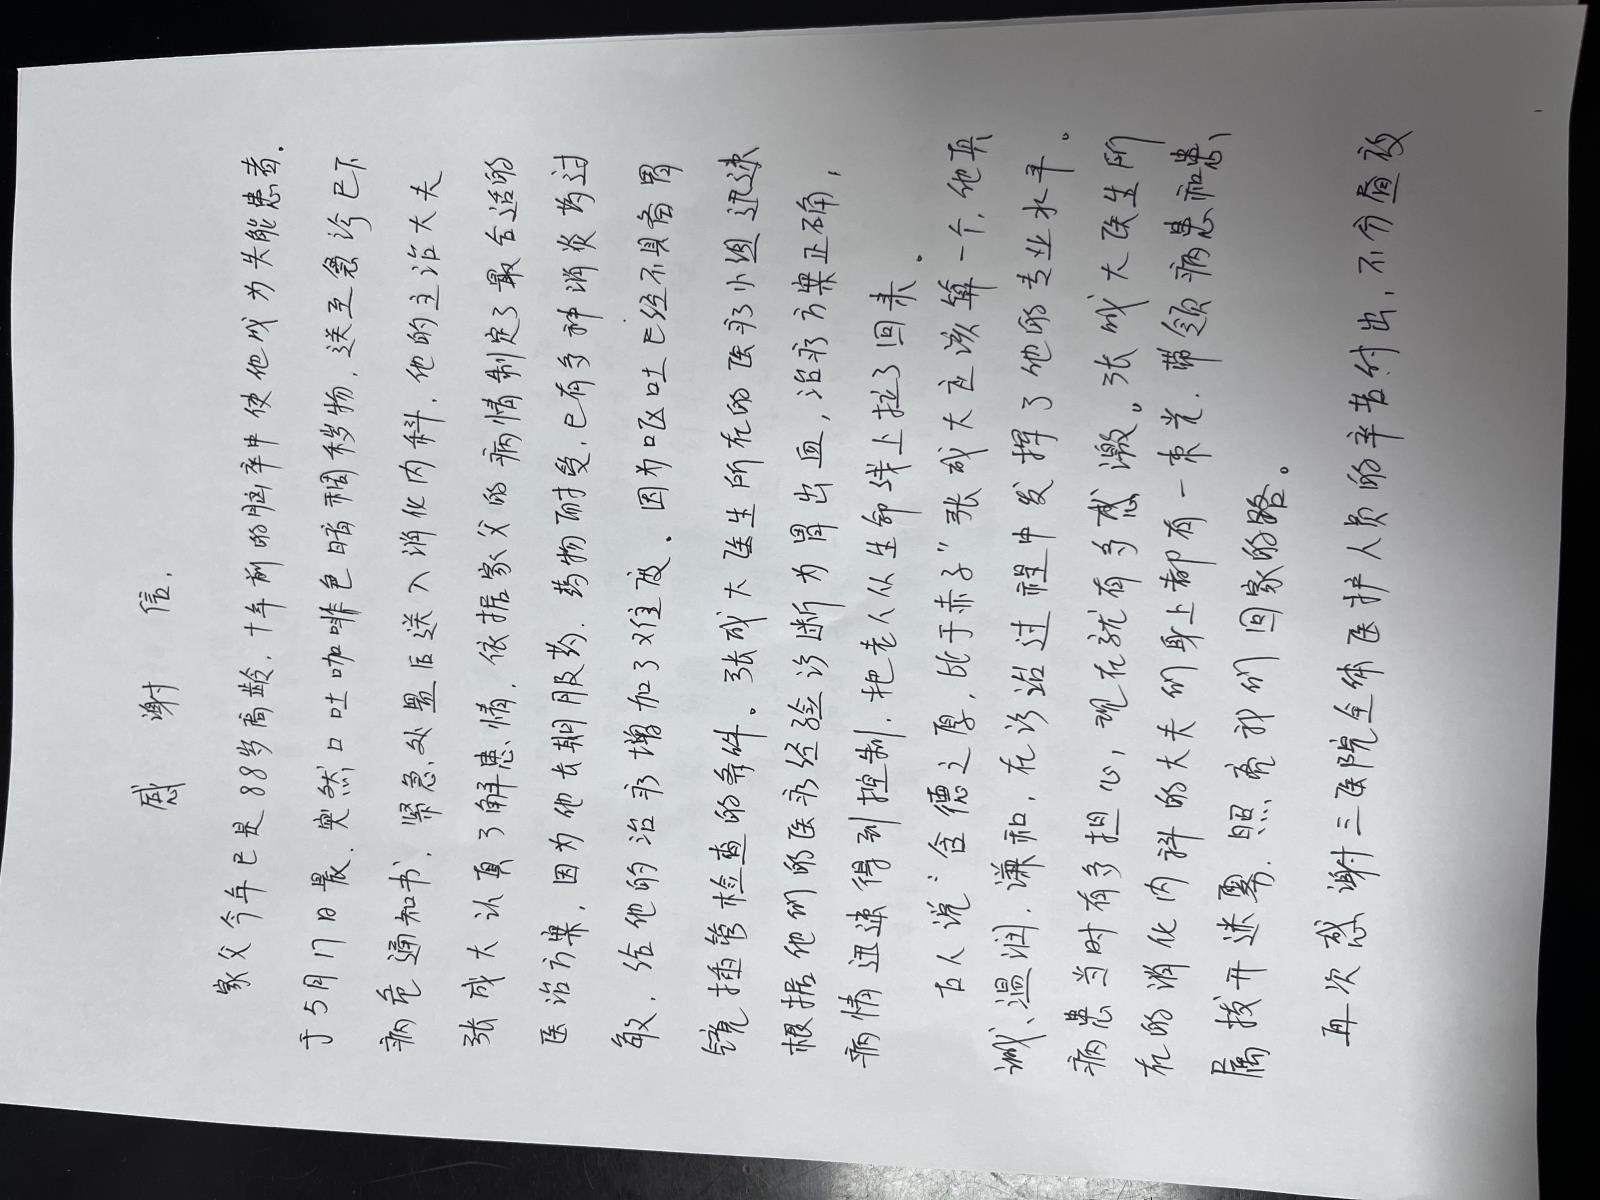 感谢信.
家父今年已是88岁高龄,十年前的脑卒中使他成为失能患者.
于5月17日晨.突然口吐咖啡色暗稠秽物,送至急诊已下
病危通知书.紧急处置后送入消化内科.他的主治大夫
张成大认真了解患情.依据家父的病情制定了最合适的
医治方案.因为他长期服药.药物耐受.已有多种消炎药过
敏.给他的治疗增加了难度.因为呕吐已经不具备胃
镜插管检查的条件。张成大医生所在的医疗小组迅速
根据他们的医疗经验诊断为胃出血,治疗方案正确,
病情迅速得到控制.把老人从生命线上拉了回来.
古人说"含德之厚,比于赤子"张成大应该算一个.他真
诚、温润.谦和.在诊治过程中发挥了他的专业水平。
病患当时有多担心,现在就有多感激。张成大医生所
在的消化内科的大夫们身上都有一束光.带领病患和患
属拨开迷雾.照亮我们回家的路。
再次感谢三医院全体医护人员的辛苦付出,不分昼夜